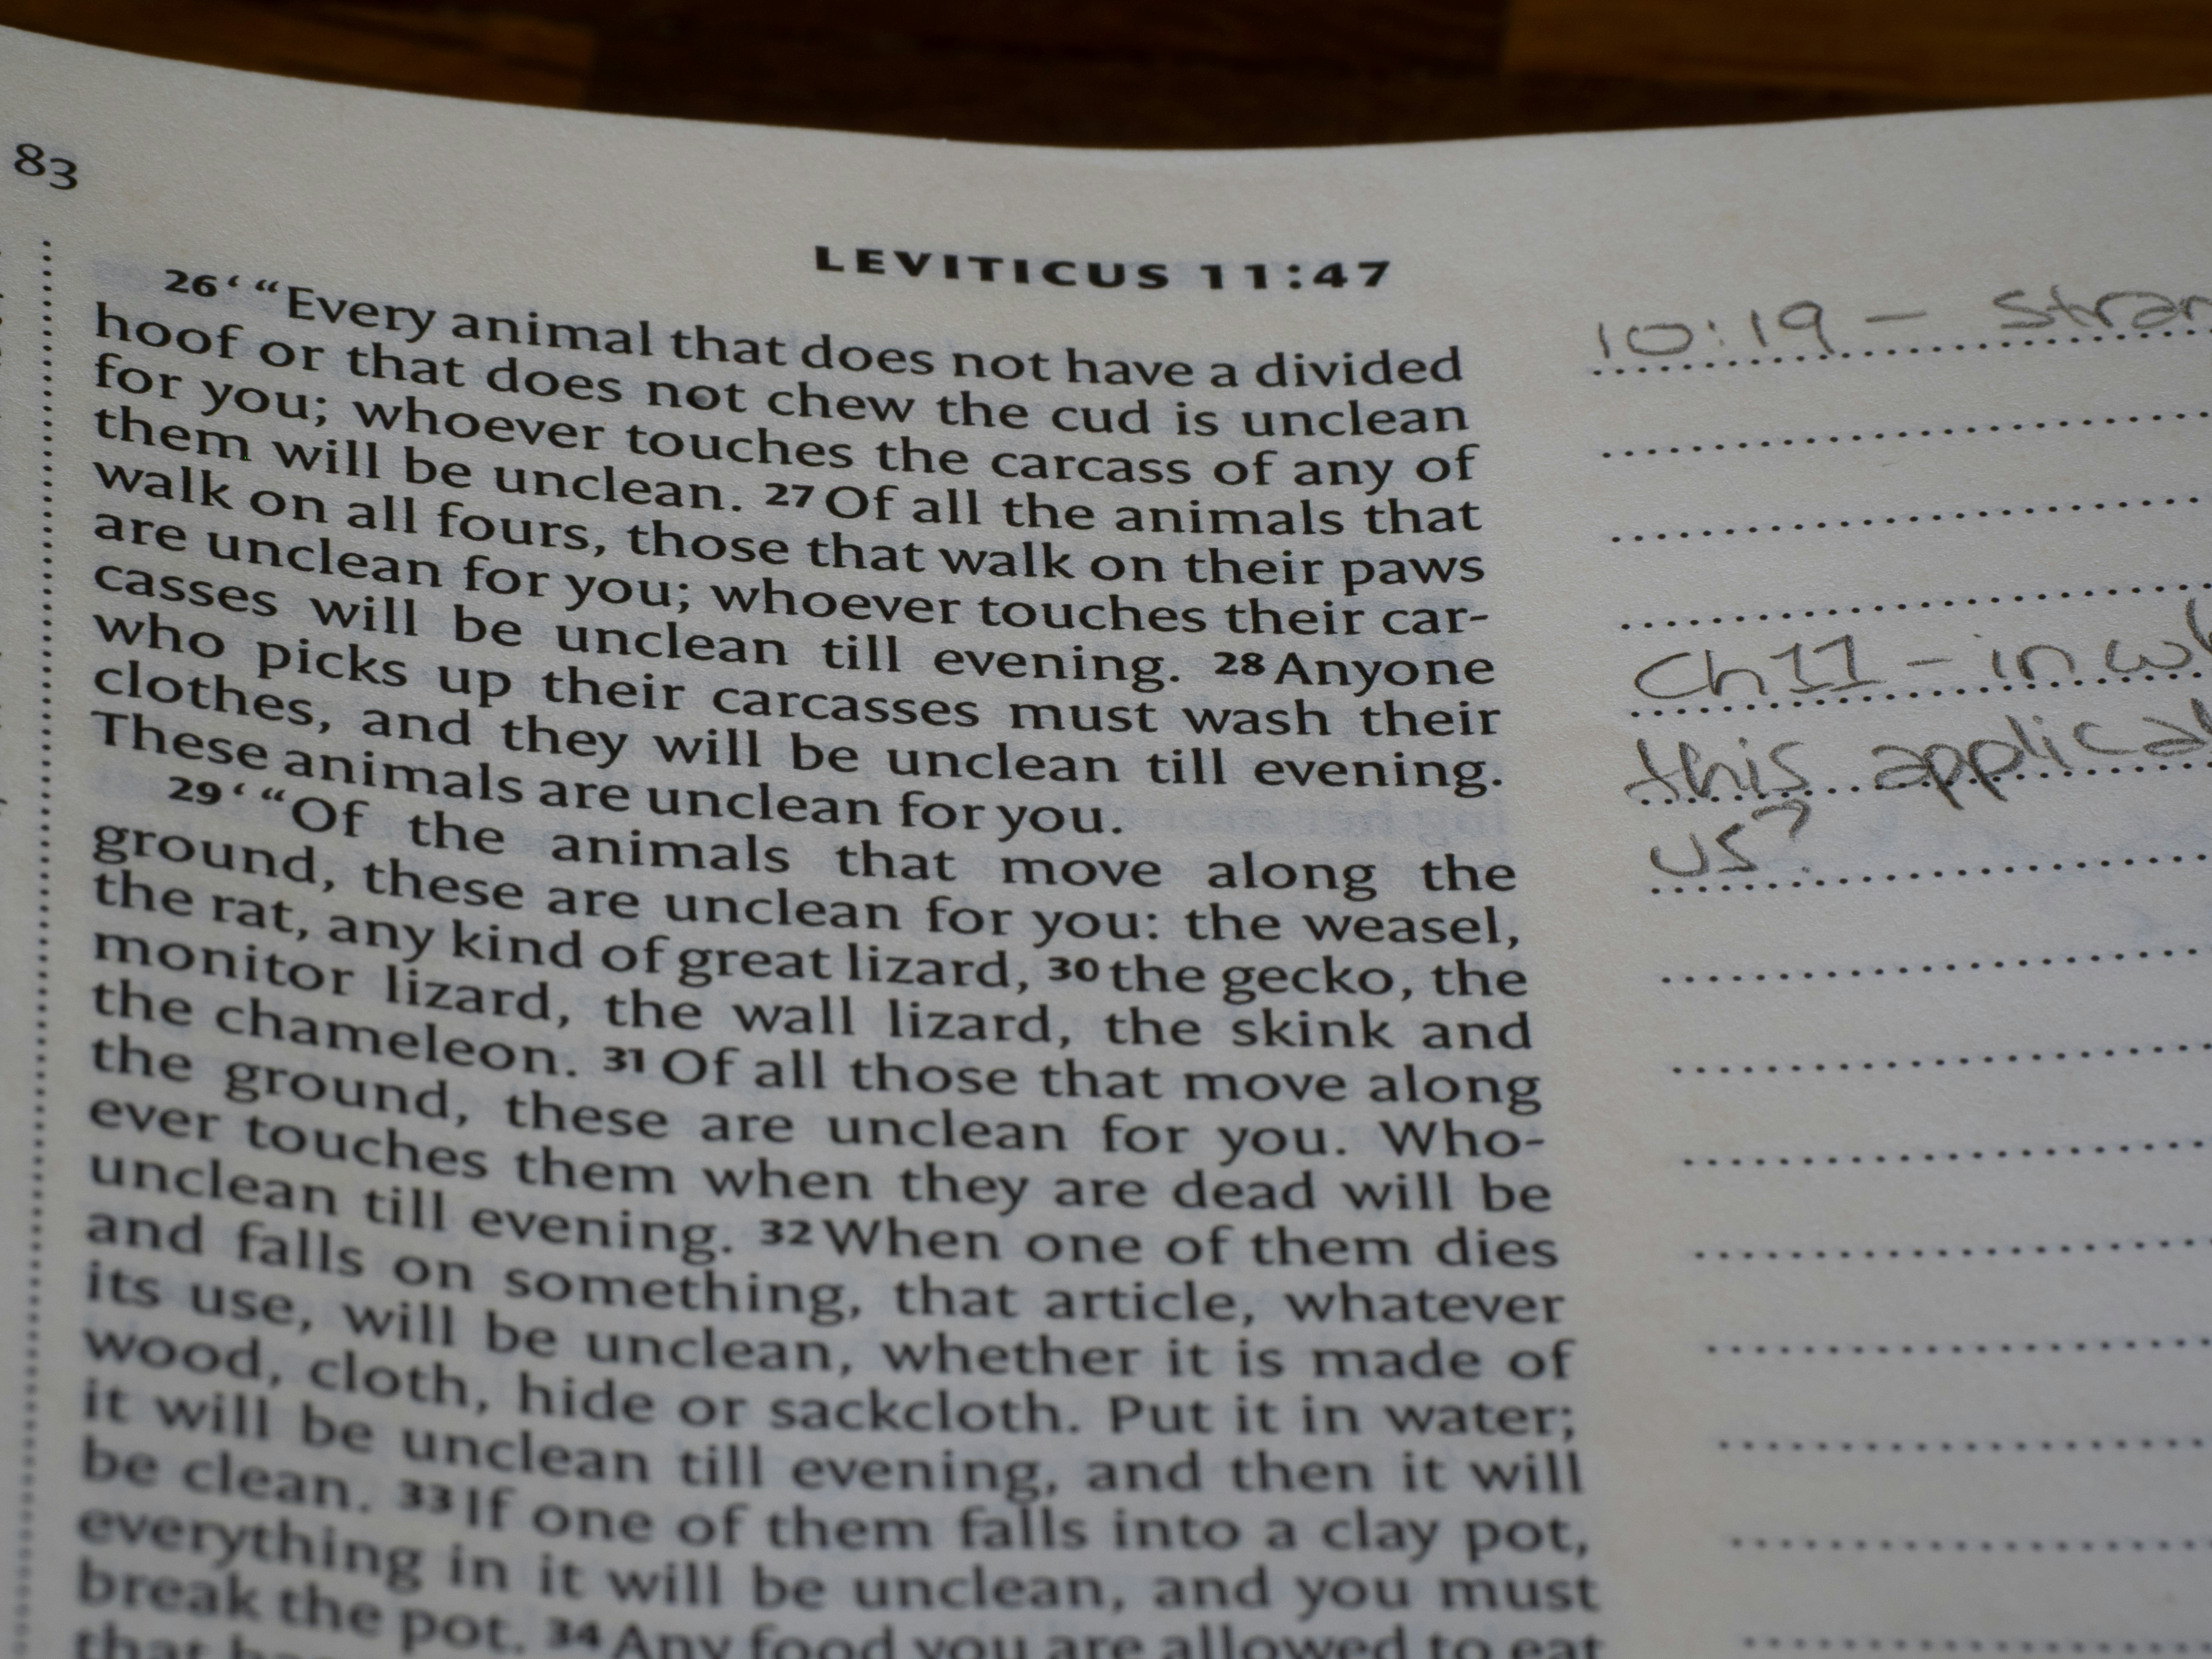 83
LEVITICUS 11:47
26‘ “Every animal that does not have a divided
hoof or that does not chew the cud is unclean
for you; whoever touches the carcass of any of
them will be unclean. 27 Of all the animals that
walk on all fours, those that walk on their paws
are unclean for you; whoever touches their car-
casses will be unclean till evening. 28 Anyone
who picks up their carcasses must wash their
clothes, and they will be unclean till evening.
These animals are unclean for you.
29‘ “Of the animals that move along the
ground, these are unclean for you: the weasel,
the rat, any kind of great lizard, 30 the gecko, the
monitor lizard, the wall lizard, the skink and
the chameleon. 31 Of all those that move along
the ground, these are unclean for you. Who-
ever touches them when they are dead will be
unclean till evening. 32 When one of them dies
and falls on something, that article, whatever
its use, will be unclean, whether it is made of
wood, cloth, hide or sackcloth. Put it in water;
it will be unclean till evening, and then it will
be clean. 33 If one of them falls into a clay pot,
everything in it will be unclean, and you must
break the pot. 34 Any food you are allowed to eat
that
10:19 –
Ch 11 – in
this
us?